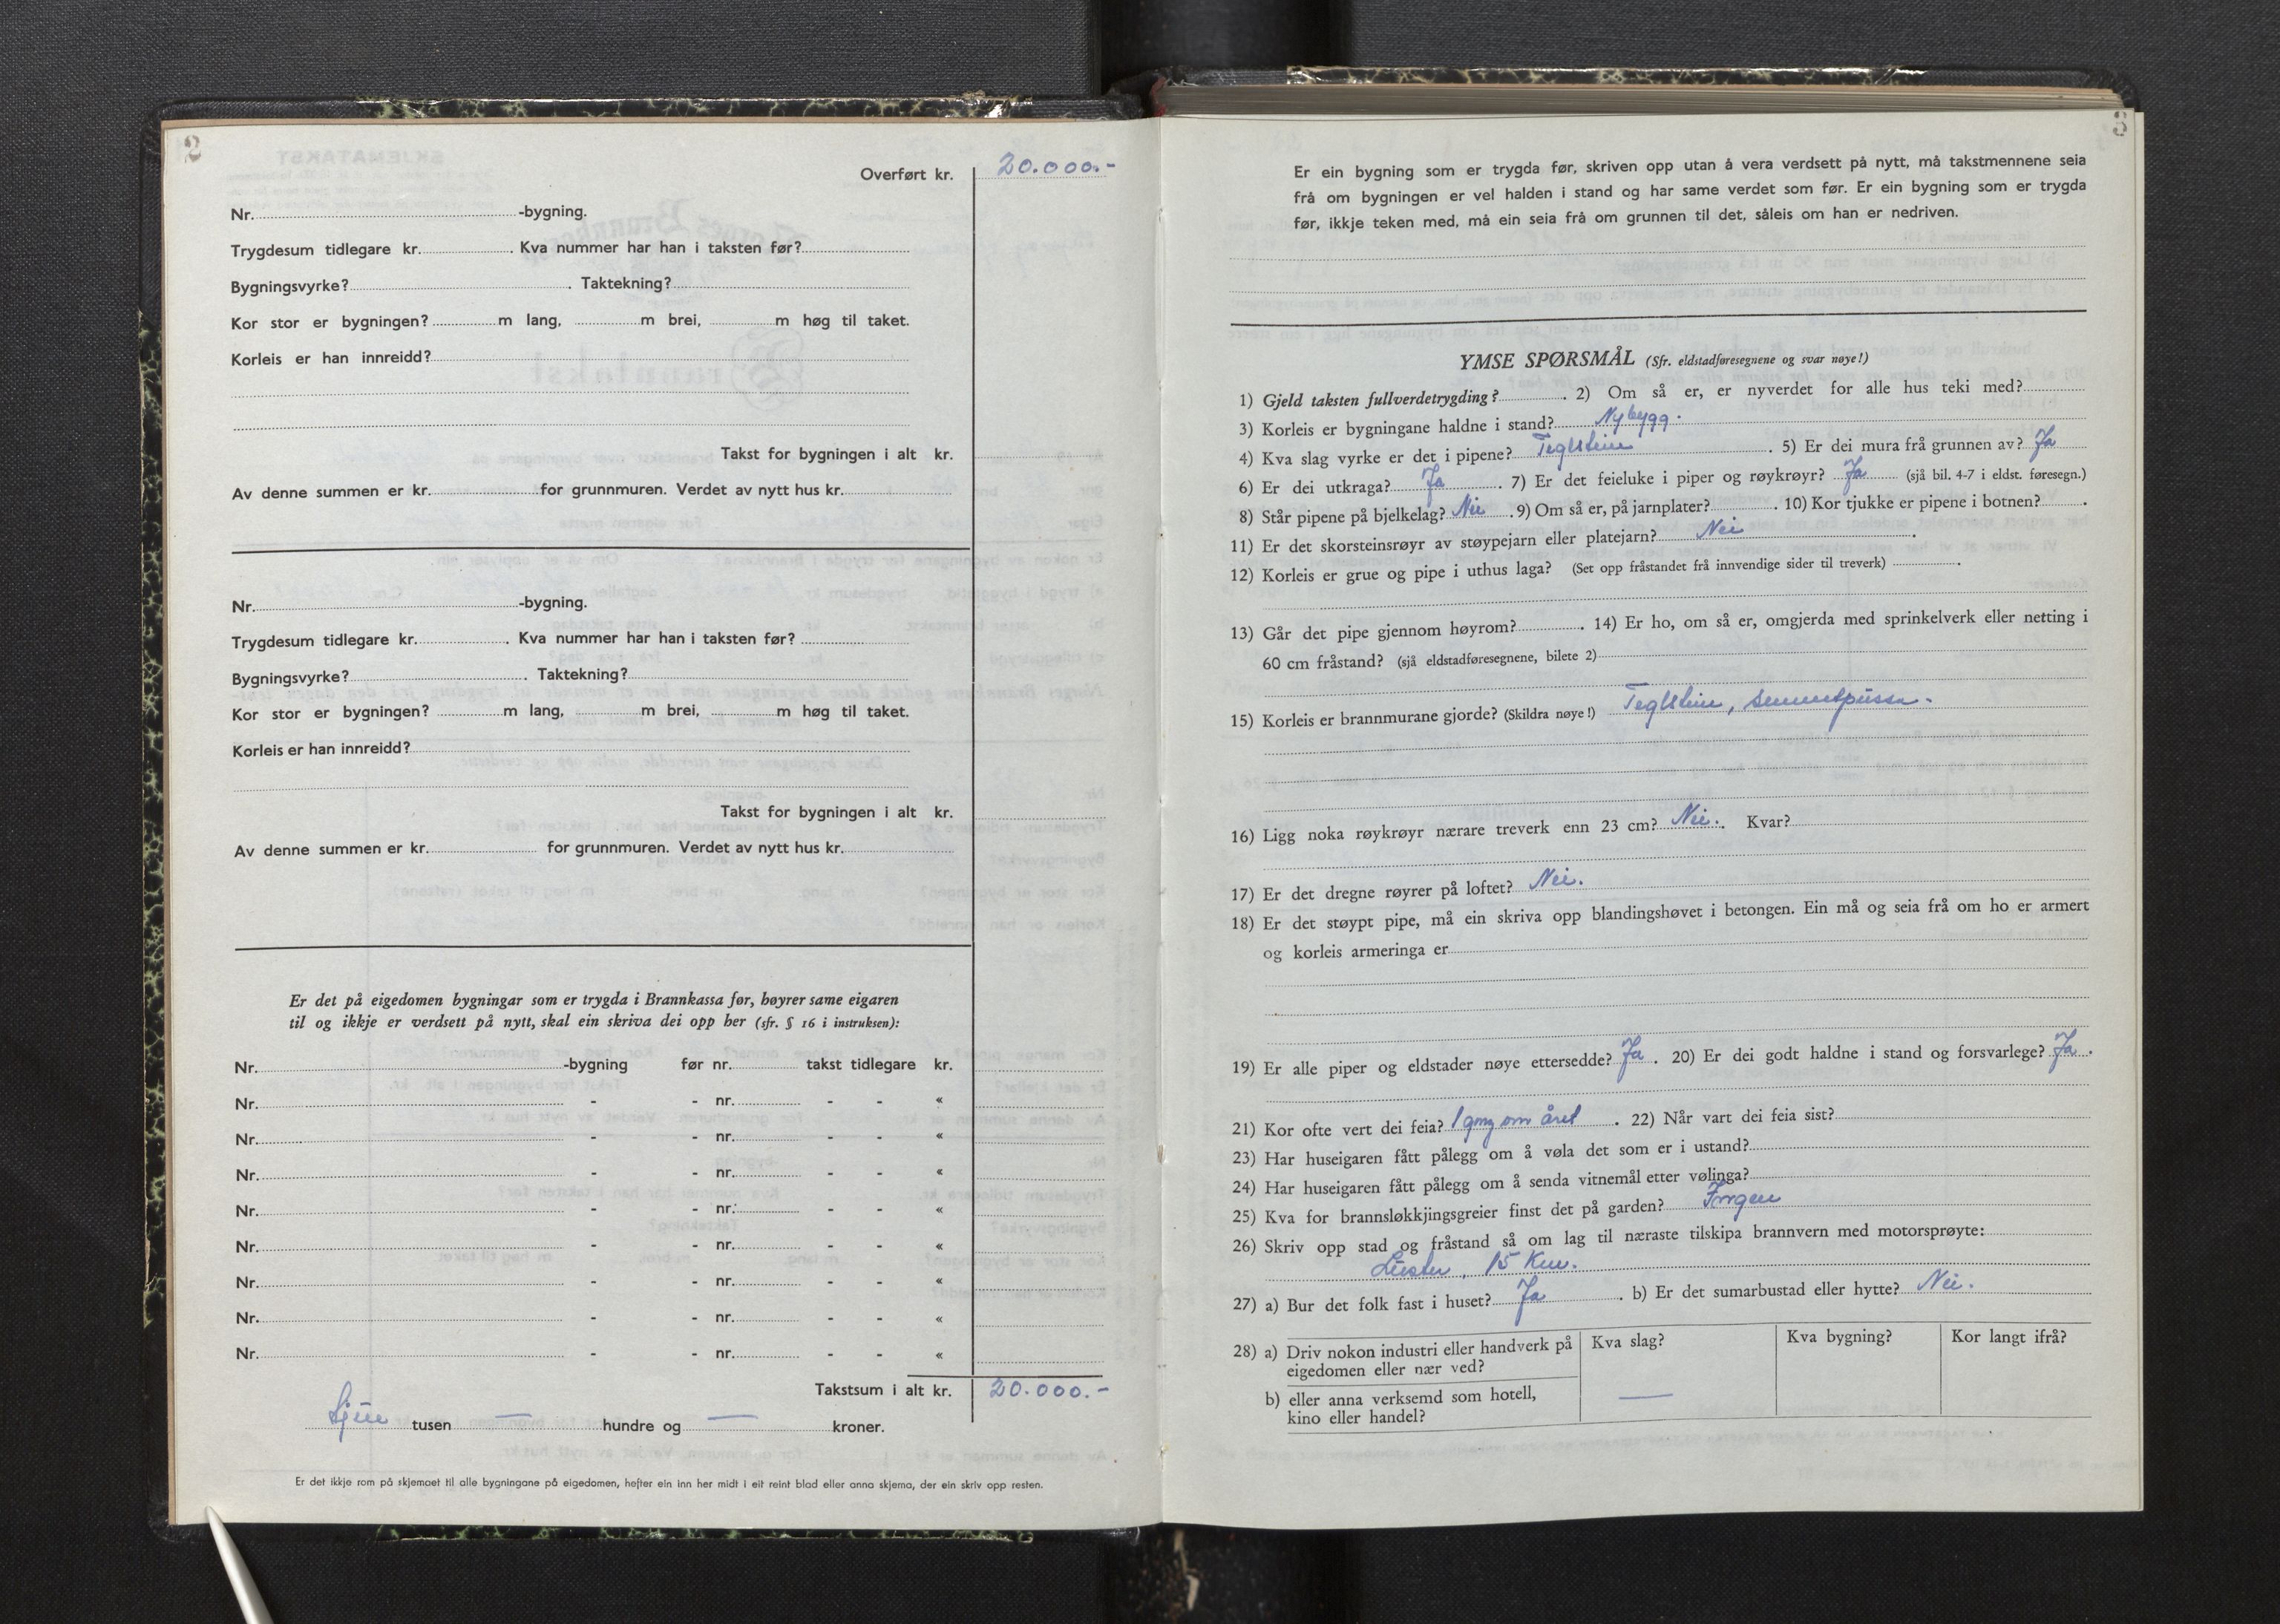 2
Overført kr. 20.000.-
Nr. -bygning.
Trygdesum tidlegare kr. . Kva nummer har han i taksten før?
Bygningsvyrke? . Taktekning?
Kor stor er bygningen? m lang, m brei, m høg til taket.
Korleis er han innreidd?
Takst for bygningen i alt kr.
Av denne summen er kr. for grunnmuren. Verdet av nytt hus kr.
Nr. -bygning.
Trygdesum tidlegare kr. . Kva nummer har han i taksten før?
Bygningsvyrke? . Taktekning?
Kor stor er bygningen? m lang, m brei, m høg til taket.
Korleis er han innreidd?
Takst for bygningen i alt kr.
Av denne summen er kr. for grunnmuren. Verdet av nytt hus kr.
Er det på eigedomen bygningar som er trygda i Brannkassa før, høyrer same eigaren
til og ikkje er verdsett på nytt, skal ein skriva dei opp her (sfr. § 16 i instruksen):
Nr. -bygning før nr. takst tidlegare kr.
Nr. - - nr. - - «
Nr. - - nr. - - «
Nr. - - nr. - - «
Nr. - - nr. - - «
Nr. - - nr. - - «
Nr. - - nr. - - «
Nr. - - nr. - - «
Nr. - - nr. - - «
Takstsum i alt kr. 20.000.-
tusen — hundre og — kroner.
Er det ikkje rom på skjemaet til alle bygningane på eigedomen, hefter ein inn her midt i eit reint blad eller anna skjema, der ein skriv opp resten.
3
Er ein bygning som er trygda før, skriven opp utan å vera verdsett på nytt, må takstmennene seia
frå om bygningen er vel halden i stand og har same verdet som før. Er ein bygning som er trygda
før, ikkje teken med, må ein seia frå om grunnen til det, såleis om han er nedriven.
YMSE SPØRSMÅL (Sfr. eldstadføresegnene og svar nøye!)
1) Gjeld taksten fullverdetrygding? . 2) Om så er, er nyverdet for alle hus teki med?
3) Korleis er bygningane haldne i stand? Nybygg.
4) Kva slag vyrke er det i pipene? Teglstein . 5) Er dei mura frå grunnen av? Ja
6) Er dei utkraga? Ja . 7) Er det feieluke i piper og røykrøyr? Ja (sjå bil. 4-7 i eldst. føresegn.)
8) Står pipene på bjelkelag? Nei . 9) Om så er, på jarnplater? . 10) Kor tjukke er pipene i botnen? .
11) Er det skorsteinsrøyr av støypejarn eller platejarn? Nei .
12) Korleis er grue og pipe i uthus laga? (Set opp fråstandet frå innvendige sider til treverk) .
13) Går det pipe gjennom høyrom? . 14) Er ho, om så er, omgjerda med sprinkelverk eller netting i
60 cm fråstand? (sjå eldstadføresegnene, bilete 2)
15) Korleis er brannmurane gjorde? (Skildra nøye!) Teglstein, sementpussa.
16) Ligg noka røykrøyr nærare treverk enn 23 cm? Nei. . Kvar?
17) Er det dregne røyrer på loftet? Nei.
18) Er det støypt pipe, må ein skriva opp blandingshøvet i betongen. Ein må og seia frå om ho er armert
og korleis armeringa er
19) Er alle piper og eldstader nøye ettersedde? Ja . 20) Er dei godt haldne i stand og forsvarlege? Ja .
21) Kor ofte vert dei feia? 1 gong om året . 22) Når vart dei feia sist?
23) Har huseigaren fått pålegg om å vøla det som er i ustand?
24) Har huseigaren fått pålegg om å senda vitnemål etter vølinga?
25) Kva for brannsløkkjingsgreier finst det på garden? Ingen
26) Skriv opp stad og fråstand så om lag til næraste tilskipa brannvern med motorsprøyte:
Luster, 15 Km.
27) a) Bur det folk fast i huset? Ja . b) Er det sumarbustad eller hytte? Nei.
28) a) Driv nokon industri eller handverk på Kva slag? Kva bygning? Kor langt ifrå?
eigedomen eller nær ved?
b) eller anna verksemd som hotell, —
kino eller handel?